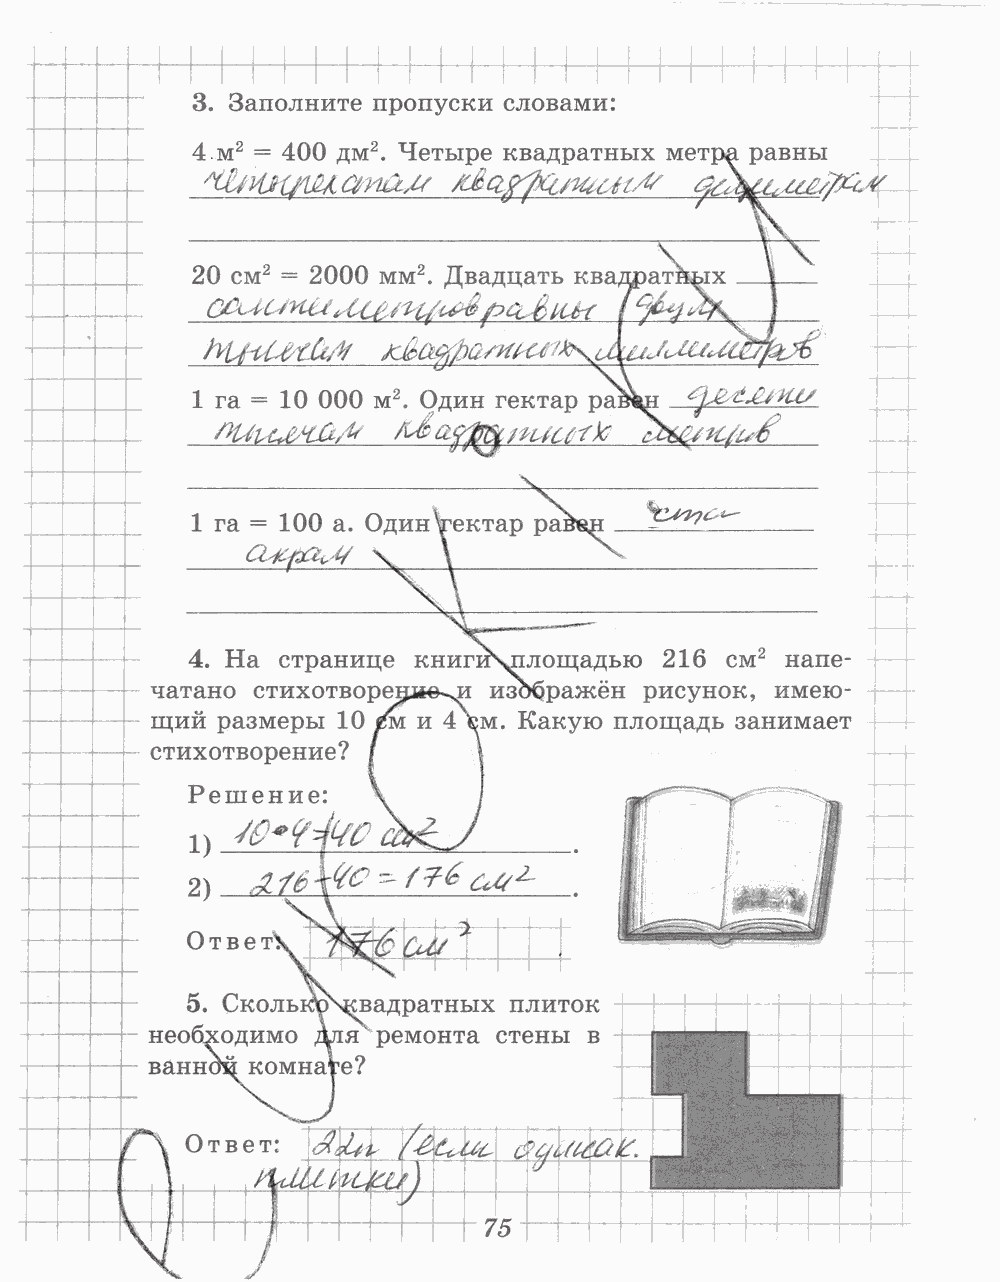 3. Заполните пропуски словами:
4 м² = 400 дм². Четыре квадратных метра равны
четырёмстам квадратным дециметрам
20 см² = 2000 мм². Двадцать квадратных
сантиметров равны двум
тысячам квадратных миллиметров
1 га = 10 000 м². Один гектар равен десяти
тысячам квадратных метров
1 га = 100 а. Один гектар равен ста
акрам
4. На странице книги площадью 216 см² напе-
чатано стихотворение и изображён рисунок, имею-
щий размеры 10 см и 4 см. Какую площадь занимает
стихотворение?
Решение:
1) 10•4=40 см².
2) 216-40=176 см².
Ответ: 176 см²
5. Сколько квадратных плиток
необходимо для ремонта стены в
ванной комнате?
Ответ: 22п (если одинак.
плитки)
75